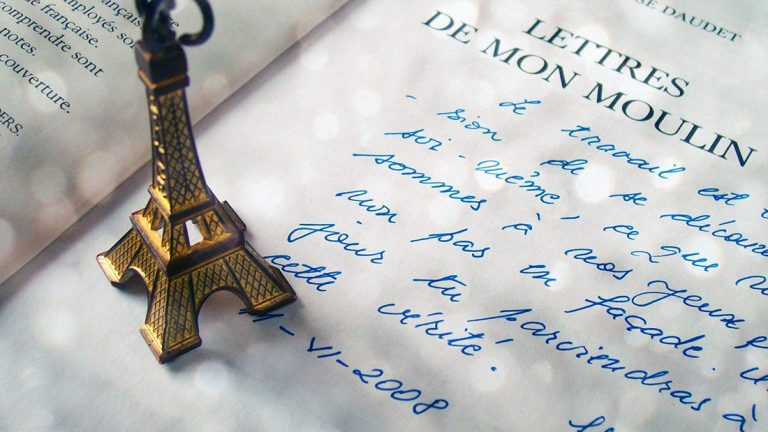 ançais
employés so
e française.
comprendre sont
notes.
couverture.
DERS.
SE DAUDET
LETTRES
DE MON MOULIN
Le travail est
- sion de se découv
soi-même, ce que
sommes à nos yeux
non pas en façade. U
jour tu parviendras à
cette vérité.
11-VI-2008